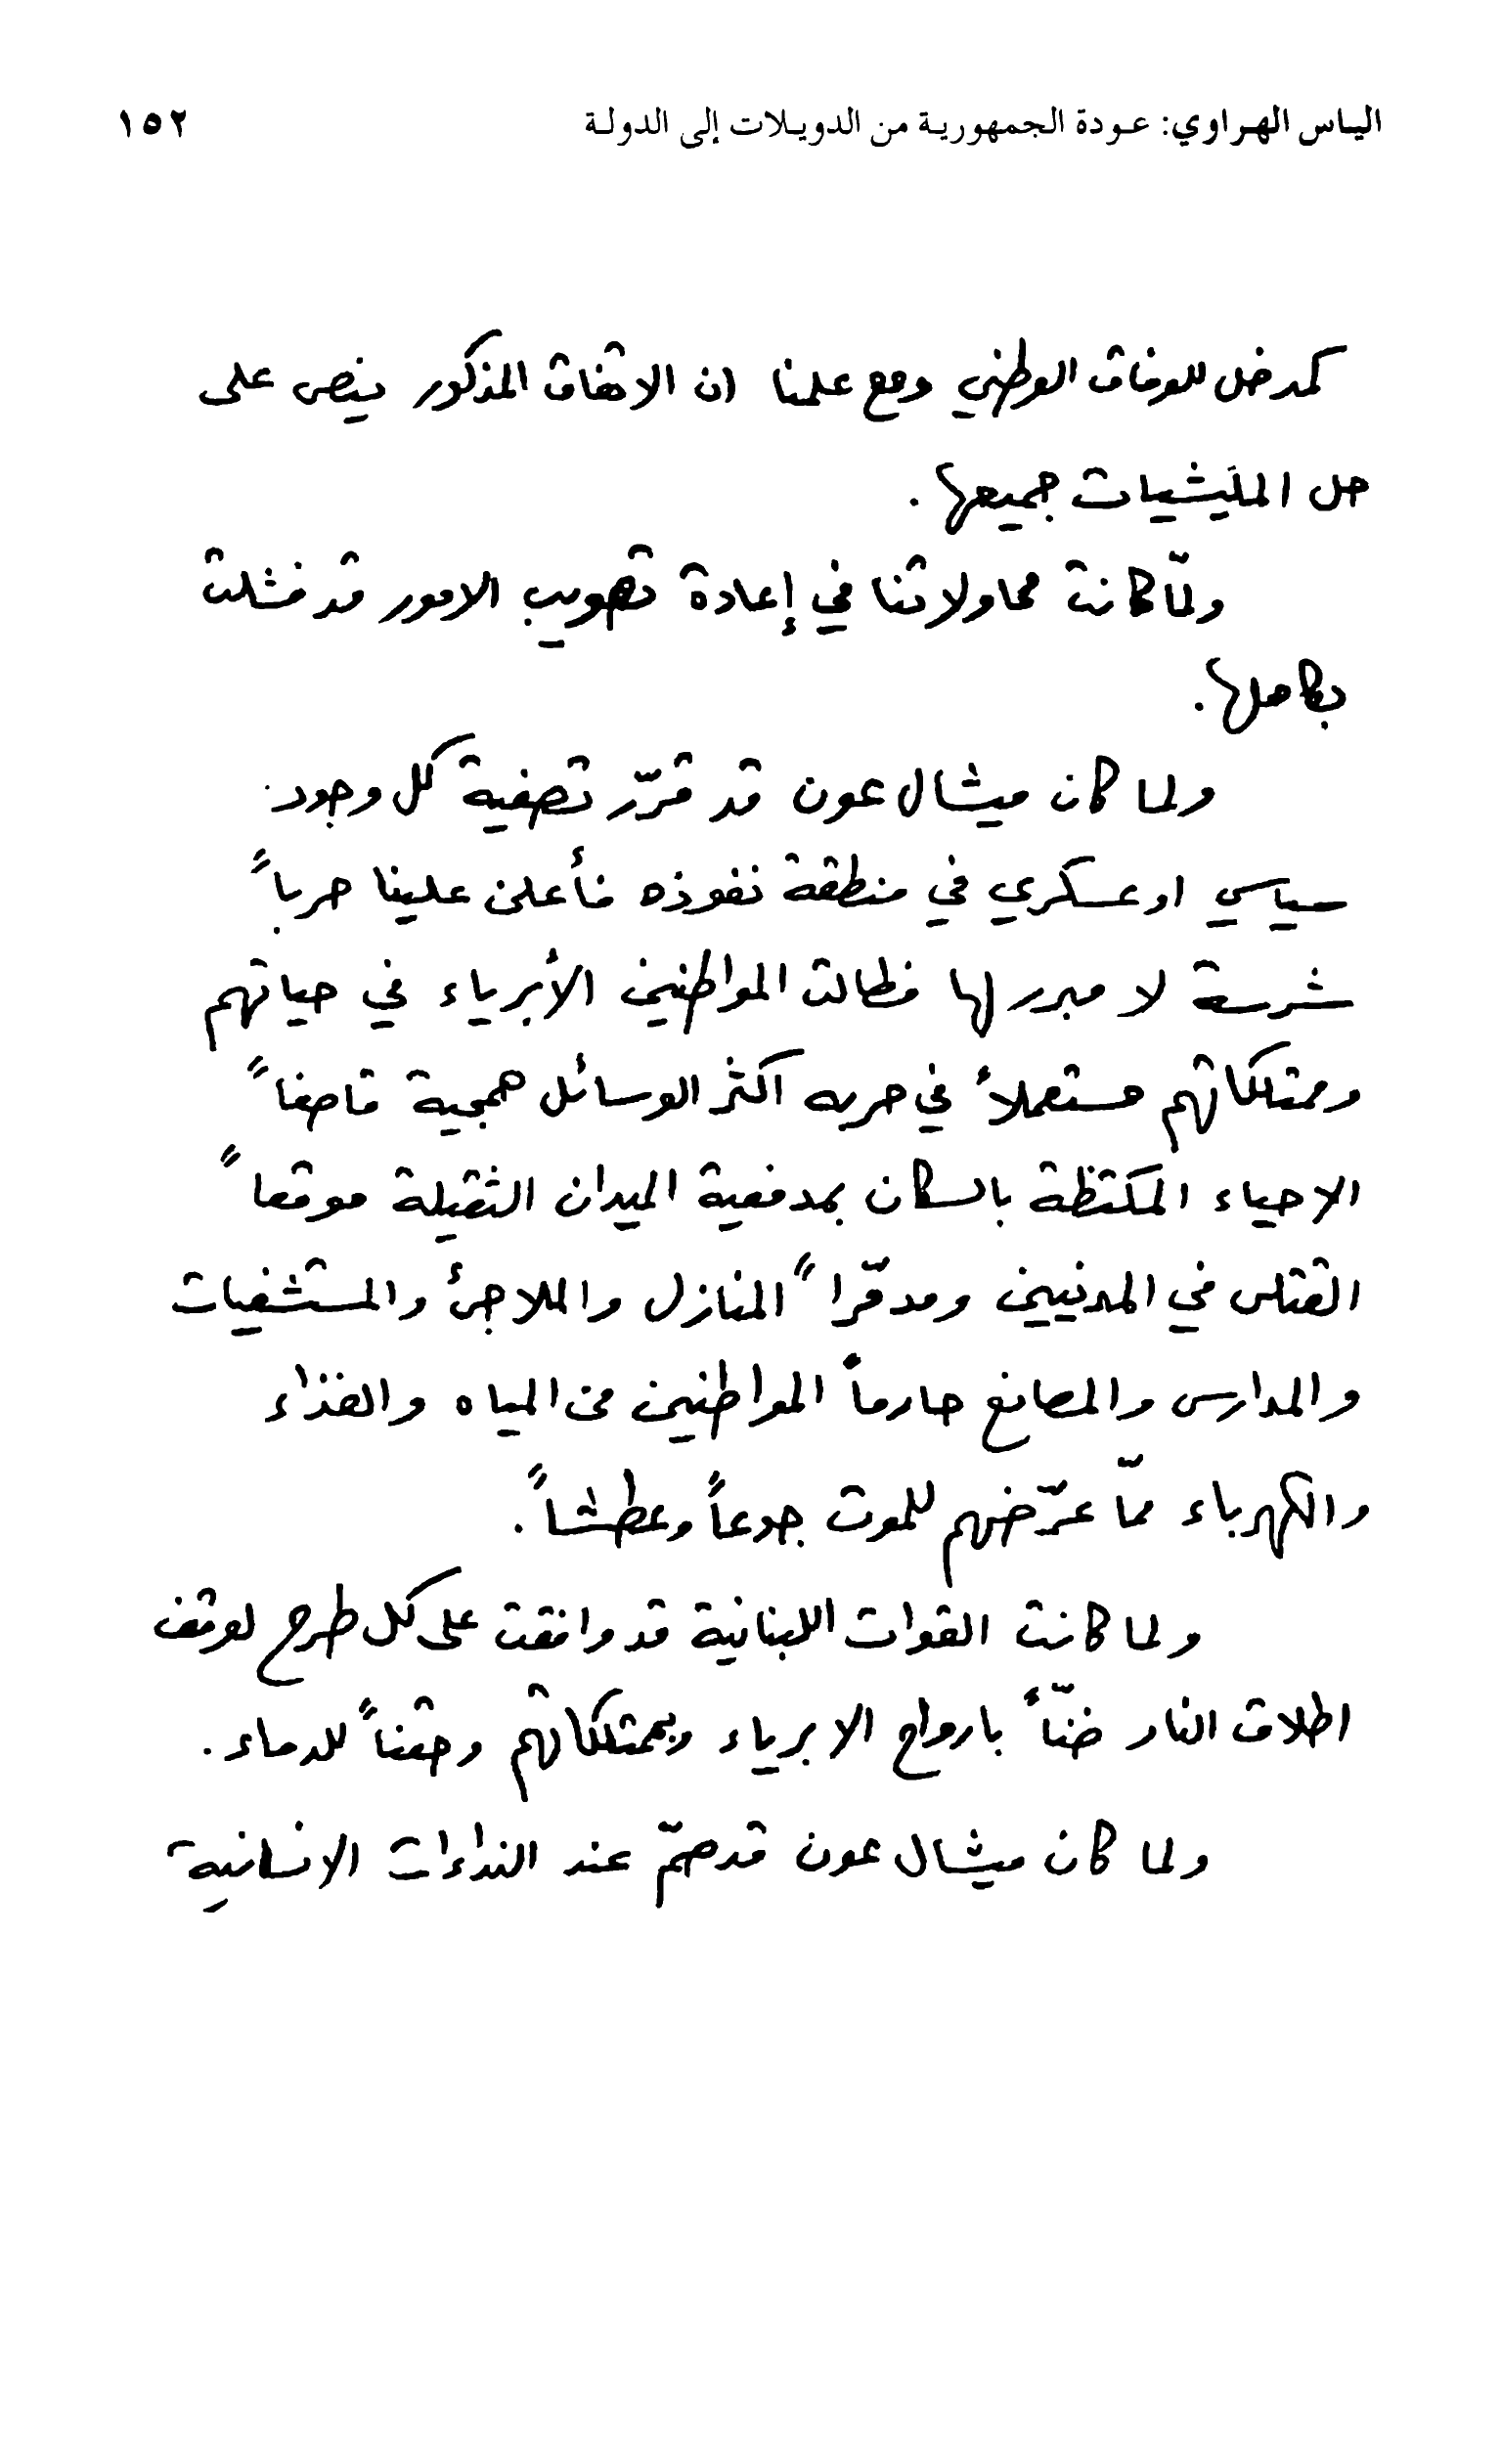 الياس الهراوي: عودة الجمهورية من الدويلات إلى الدولة ١٥٢
كمدخل للوفاق الوطني ومع علمنا ان الاتفاق المذكور ينص على
حل المليشيات جميعها.
ولمّا كانت محاولاتنا في إعادة تصويب الامور قد فشلت
بكاملها.
ولما كان ميشال عون قد قرّر تصفية كل وجود
سياسي او عسكري في منطقة نفوذه فأعلن علينا حرباً
شرسة لا مبرر لها فطالت المواطنين الأبرياء في حياتهم
وممتلكاتهم مستعملاً في حربه اكثر الوسائل همجية قاصفاً
الاحياء المكتظة بالسكان بمدفعية الميدان الثقيلة موقعاً
القتلى في المدنيين ومدمّراً المنازل والملاجئ والمستشفيات
والمدارس والمصانع حارماً المواطنين من المياه والغذاء
والكهرباء ممّا عرّضهم للموت جوعاً وعطشاً.
ولما كانت القوات اللبنانية قد وافقت على كل طرح لوقف
اطلاق النار ضنّاً بارواح الابرياء وبممتلكاتهم وحقناً للدماء.
ولما كان ميشال عون قد صمّ عند النداءات الانسانية